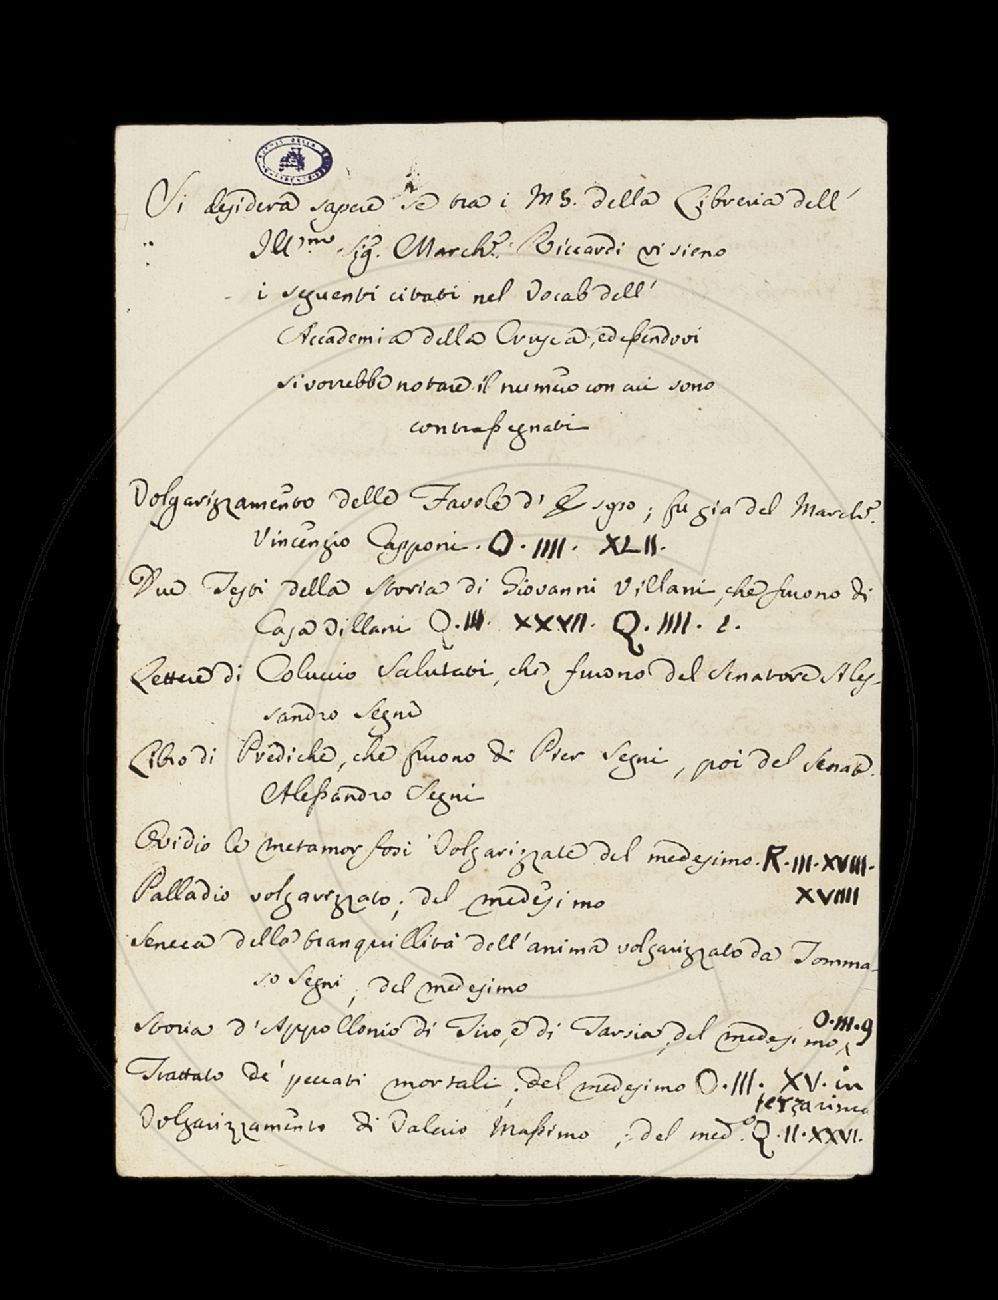 Si desidera sapere se tra i MS. della Libreria dell'
Ill.mo Sig. March.e Riccardi vi sieno
i seguenti citati nel Vocab dell'
Accademia della Crusca, ed essendovi
si vorrebbe notare il numero con cui sono
contrassegnati
Volgarizzamento delle Favole d'Esopo; fu gia del March.e
Vincenzio Capponi. O. IIII. XLII.
Due Testi della Storia di Giovanni Villani, che furono di
Casa Villani Q. III. XXXVII. Q. IIII. I.
Lettere di Coluccio Salutati, che furono del Senatore Ales-
sandro Segni
Libro di Prediche, che furono di Pier Segni, poi del Senat.e
Alessandro Segni
Ovidio le metamorfosi Volgarizzate del medesimo. R. III. XVIII.
Palladio volgarizzato; del medesimo XVIIII
Seneca della tranquillità dell'anima volgarizzato da Tomma-
so Segni; del medesimo
Storia d'Appollonio di Tiro, e di Tarsia, del medesimo O. III. 9
Trattato de' peccati mortali; del medesimo O. III. XV. in
terza rima
Volgarizzamento di Valerio Massimo; del med.o Q. II. XXVI.